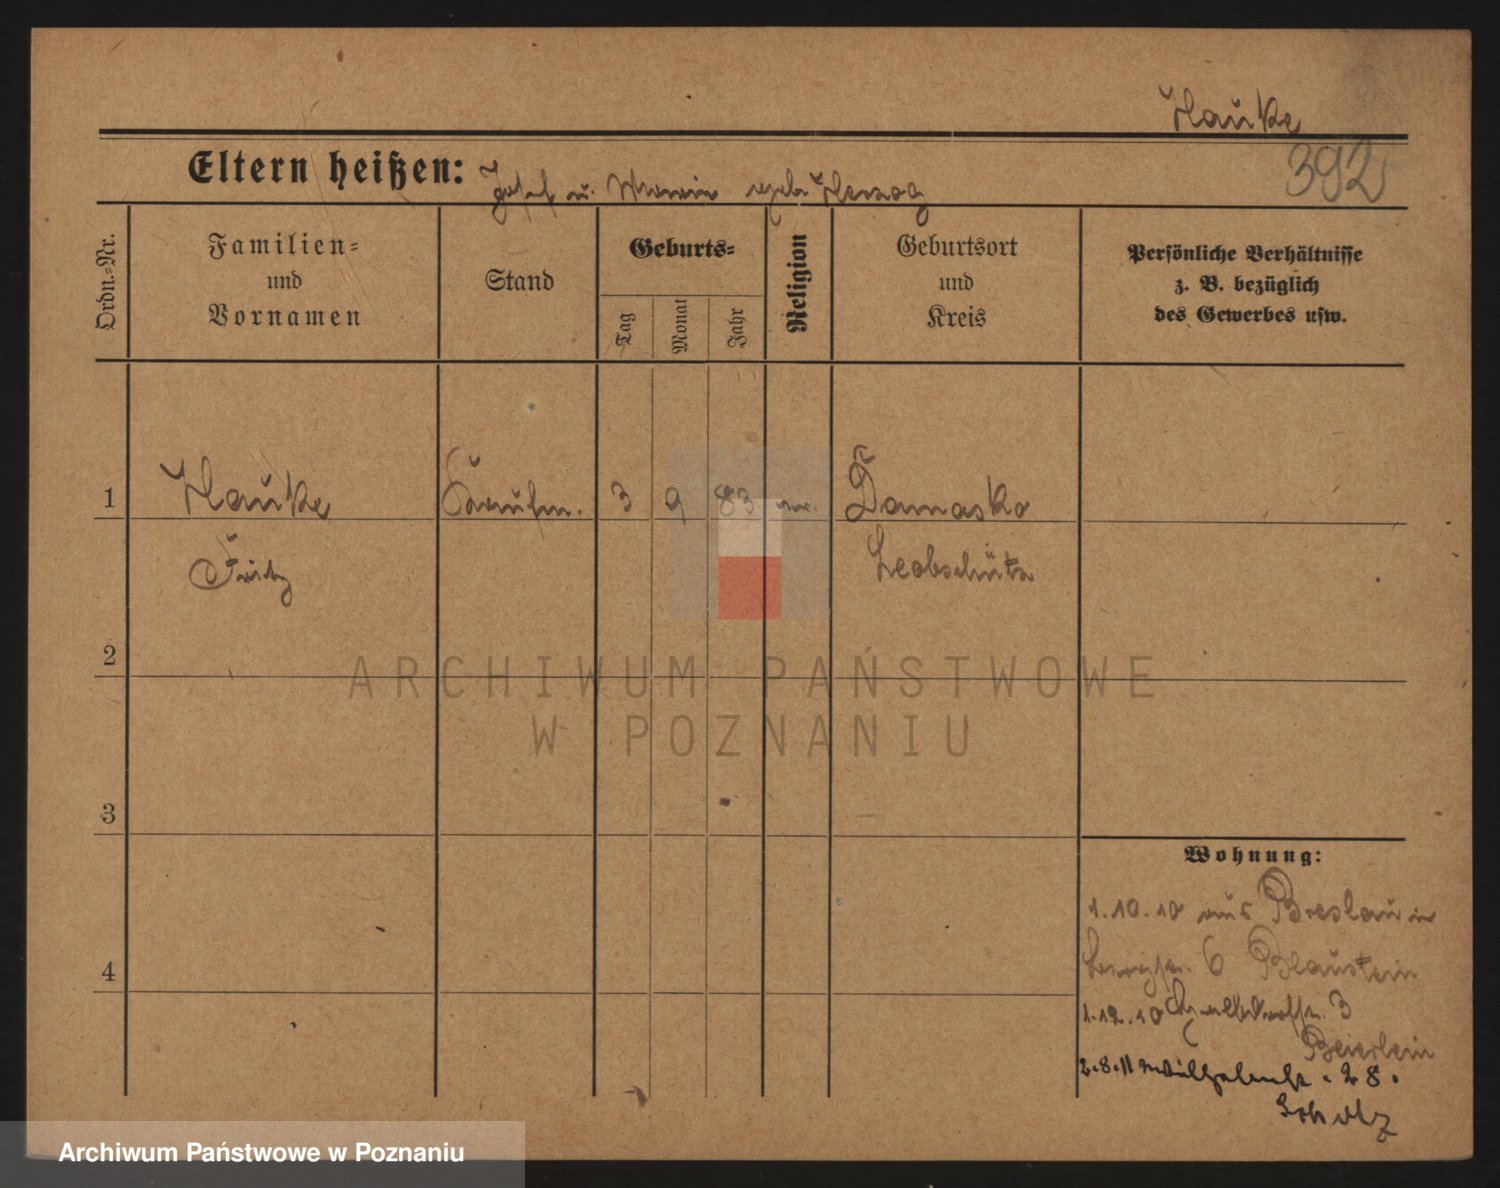 Hauke
392
Eltern heißen: Josef u. Maria geb. Herzog
Ordn.=Nr.
Familien=
und
Vornamen
Stand
Geburts=
Tag
Monat
Jahr
Religion
Geburtsort
und
Kreis
Persönliche Verhältnisse
z. B. bezüglich
des Gewerbes usw.
1 Hauke Kaufm. 3 9 83 Damasko
Fritz Leobschütz
2
3
4
Wohnung:
1.10.10 aus Breslau in
6 Blaustein
1.12.10 3
Beierlein
2.8.11 28.
Scholz
ARCHIWUM PAŃSTWOWE
W POZNANIU
Archiwum Państwowe w Poznaniu